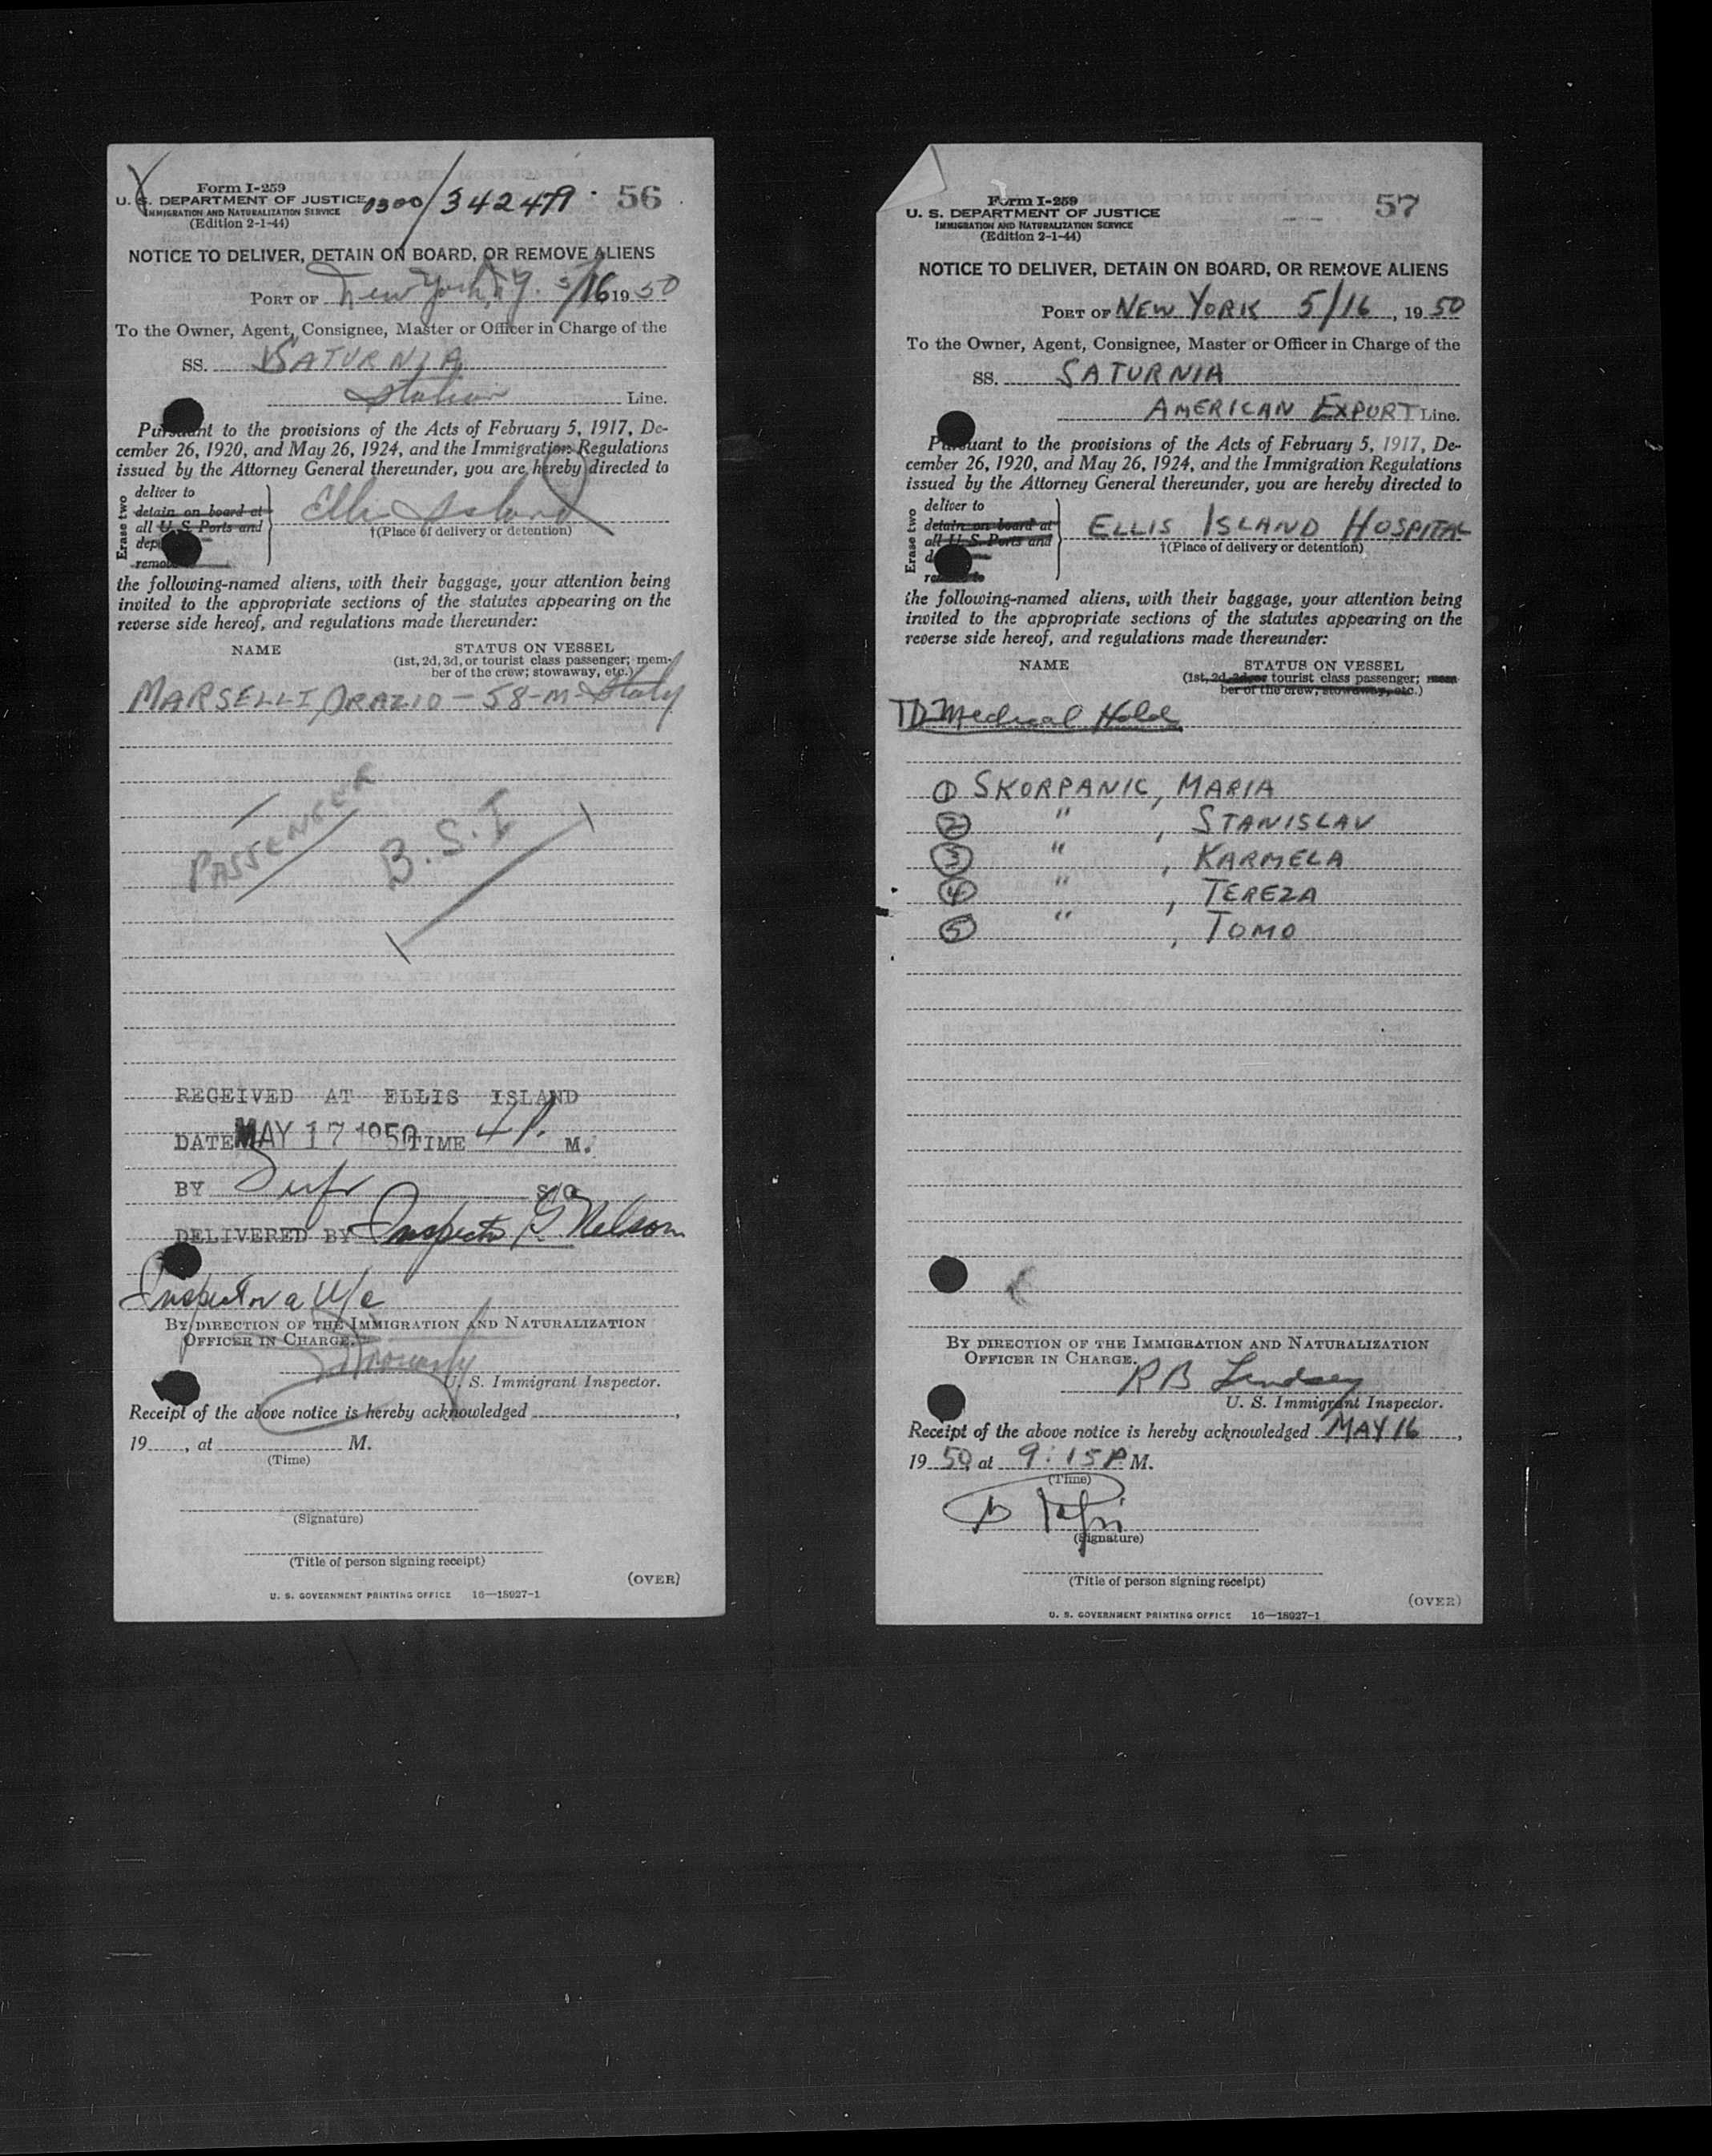 Form I-259
U. S. DEPARTMENT OF JUSTICE 0300/342479 56
IMMIGRATION AND NATURALIZATION SERVICE
(Edition 2-1-44)
NOTICE TO DELIVER, DETAIN ON BOARD, OR REMOVE ALIENS
PORT OF New York, N.Y. 5/16 1950
To the Owner, Agent, Consignee, Master or Officer in Charge of the
SS. SATURNIA
Italian Line.
Pursuant to the provisions of the Acts of February 5, 1917, De-
cember 26, 1920, and May 26, 1924, and the Immigration Regulations
issued by the Attorney General thereunder, you are hereby directed to
Erase two
deliver to
detain on board at
all U. S. Ports and
remove
Ellis Island
†(Place of delivery or detention)
the following-named aliens, with their baggage, your attention being
invited to the appropriate sections of the statutes appearing on the
reverse side hereof, and regulations made thereunder:
NAME STATUS ON VESSEL
(1st, 2d, 3d, or tourist class passenger; mem-
ber of the crew; stowaway, etc.)
MARSELLI, ORAZIO - 58-M- Italy
PASSENGER
B.S.I
RECEIVED AT ELLIS ISLAND
DATE MAY 17 1950 TIME 4 P. M.
BY S/O
DELIVERED BY Inspector G Nelson
Inspector a
BY DIRECTION OF THE IMMIGRATION AND NATURALIZATION
OFFICER IN CHARGE.
U. S. Immigrant Inspector.
Receipt of the above notice is hereby acknowledged ,
19 , at M.
(Time)
(Signature)
(Title of person signing receipt)
(OVER)
U. S. GOVERNMENT PRINTING OFFICE 16—18927-1
Form I-259
57
U. S. DEPARTMENT OF JUSTICE
IMMIGRATION AND NATURALIZATION SERVICE
(Edition 2-1-44)
NOTICE TO DELIVER, DETAIN ON BOARD, OR REMOVE ALIENS
PORT OF NEW YORK 5/16, 1950
To the Owner, Agent, Consignee, Master or Officer in Charge of the
SS. SATURNIA
AMERICAN EXPORT Line.
Pursuant to the provisions of the Acts of February 5, 1917, De-
cember 26, 1920, and May 26, 1924, and the Immigration Regulations
issued by the Attorney General thereunder, you are hereby directed to
Erase two
deliver to
detain on board at
all U. S. Ports and
ELLIS ISLAND HOSPITAL
†(Place of delivery or detention)
the following-named aliens, with their baggage, your attention being
invited to the appropriate sections of the statutes appearing on the
reverse side hereof, and regulations made thereunder:
NAME STATUS ON VESSEL
(1st, 2d, 3d, or tourist class passenger; mem-
ber of the crew; stowaway, etc.)
TD Medical Hold
① SKORPANIC, MARIA
② " , STANISLAV
③ " , KARMELA
④ " , TEREZA
⑤ " , TOMO
BY DIRECTION OF THE IMMIGRATION AND NATURALIZATION
OFFICER IN CHARGE.
R B Lindsey
U. S. Immigrant Inspector.
Receipt of the above notice is hereby acknowledged MAY 16,
1950, at 9:15 P. M.
(Time)
(Signature)
(Title of person signing receipt)
(OVER)
U. S. GOVERNMENT PRINTING OFFICE 16—18927-1